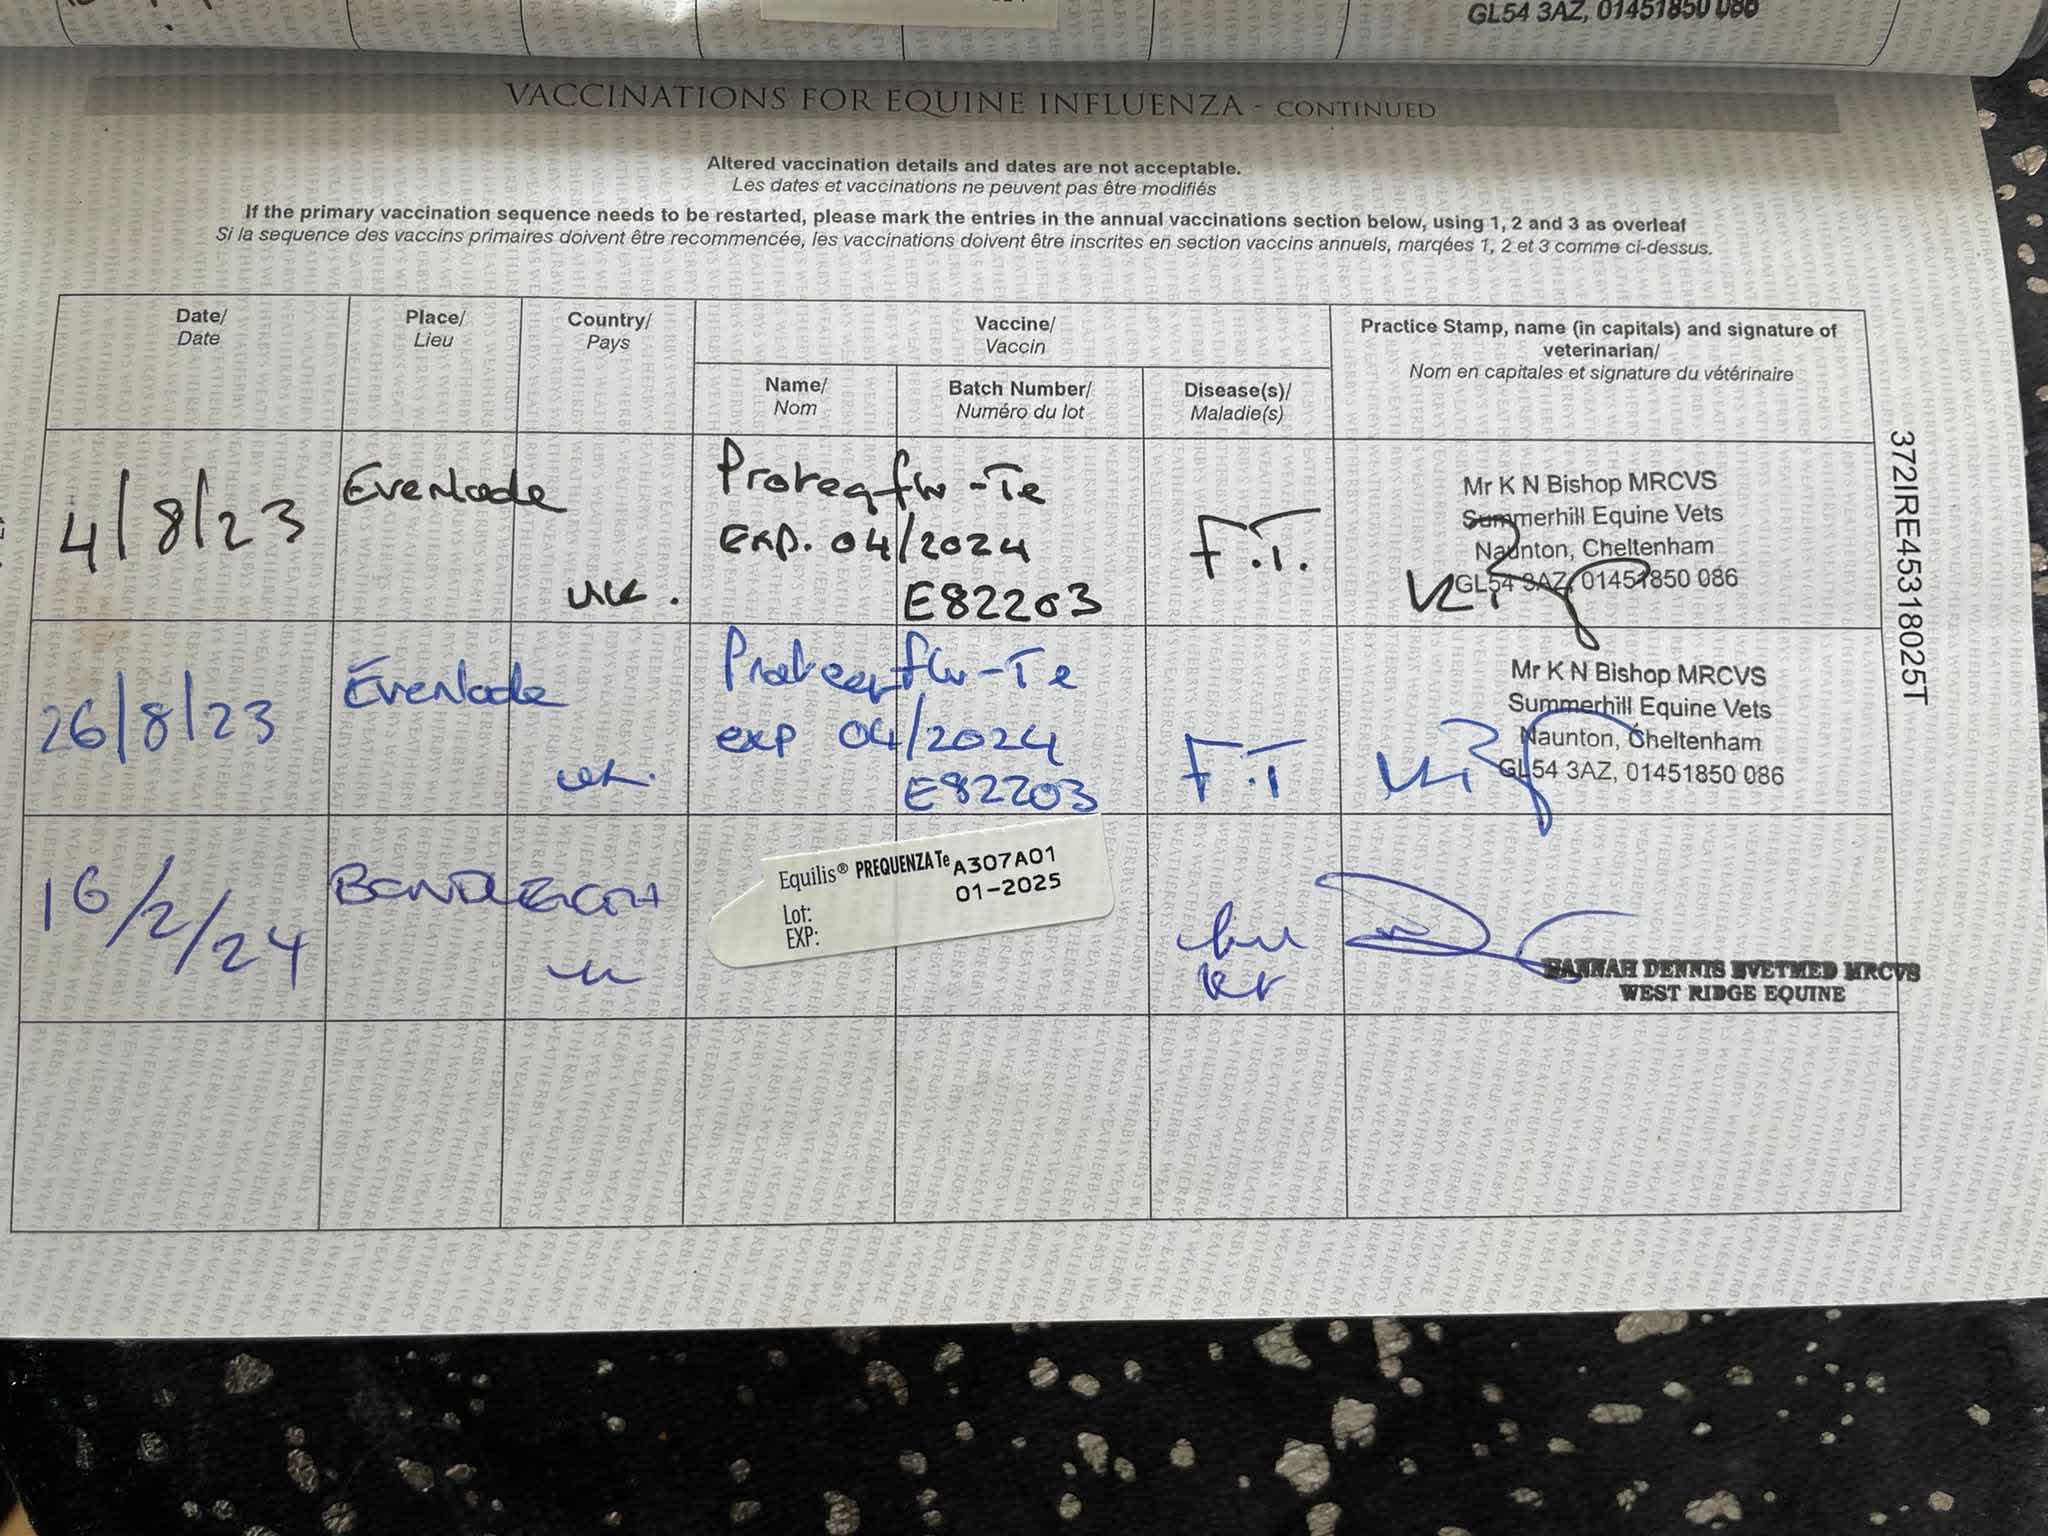 GL54 3AZ, 01451850 086
VACCINATIONS FOR EQUINE INFLUENZA - CONTINUED
Altered vaccination details and dates are not acceptable.
Les dates et vaccinations ne peuvent pas être modifiés
If the primary vaccination sequence needs to be restarted, please mark the entries in the annual vaccinations section below, using 1, 2 and 3 as overleaf
Si la sequence des vaccins primaires doivent être recommencée, les vaccinations doivent être inscrites en section vaccins annuels, marqées 1, 2 et 3 comme ci-dessus.
Date/
Date
Place/
Lieu
Country/
Pays
Vaccine/
Vaccin
Name/
Nom
Batch Number/
Numéro du lot
Disease(s)/
Maladie(s)
Practice Stamp, name (in capitals) and signature of
veterinarian/
Nom en capitales et signature du vétérinaire
4/8/23
Evenlode
UK.
Proteqflu-Te
Exp. 04/2024
E82203
F.T.
Mr K N Bishop MRCVS
Summerhill Equine Vets
Naunton, Cheltenham
GL54 3AZ, 01451850 086
26/8/23
Evenlode
UK.
Proteqflu-Te
exp 04/2024
E82203
F.T
Mr K N Bishop MRCVS
Summerhill Equine Vets
Naunton, Cheltenham
GL54 3AZ, 01451850 086
16/2/24
Equilis® PREQUENZA Te A307A01
01-2025
Lot:
EXP:
HANNAH DENNIS BVETMED MRCVS
WEST RIDGE EQUINE
372IRE45318025T